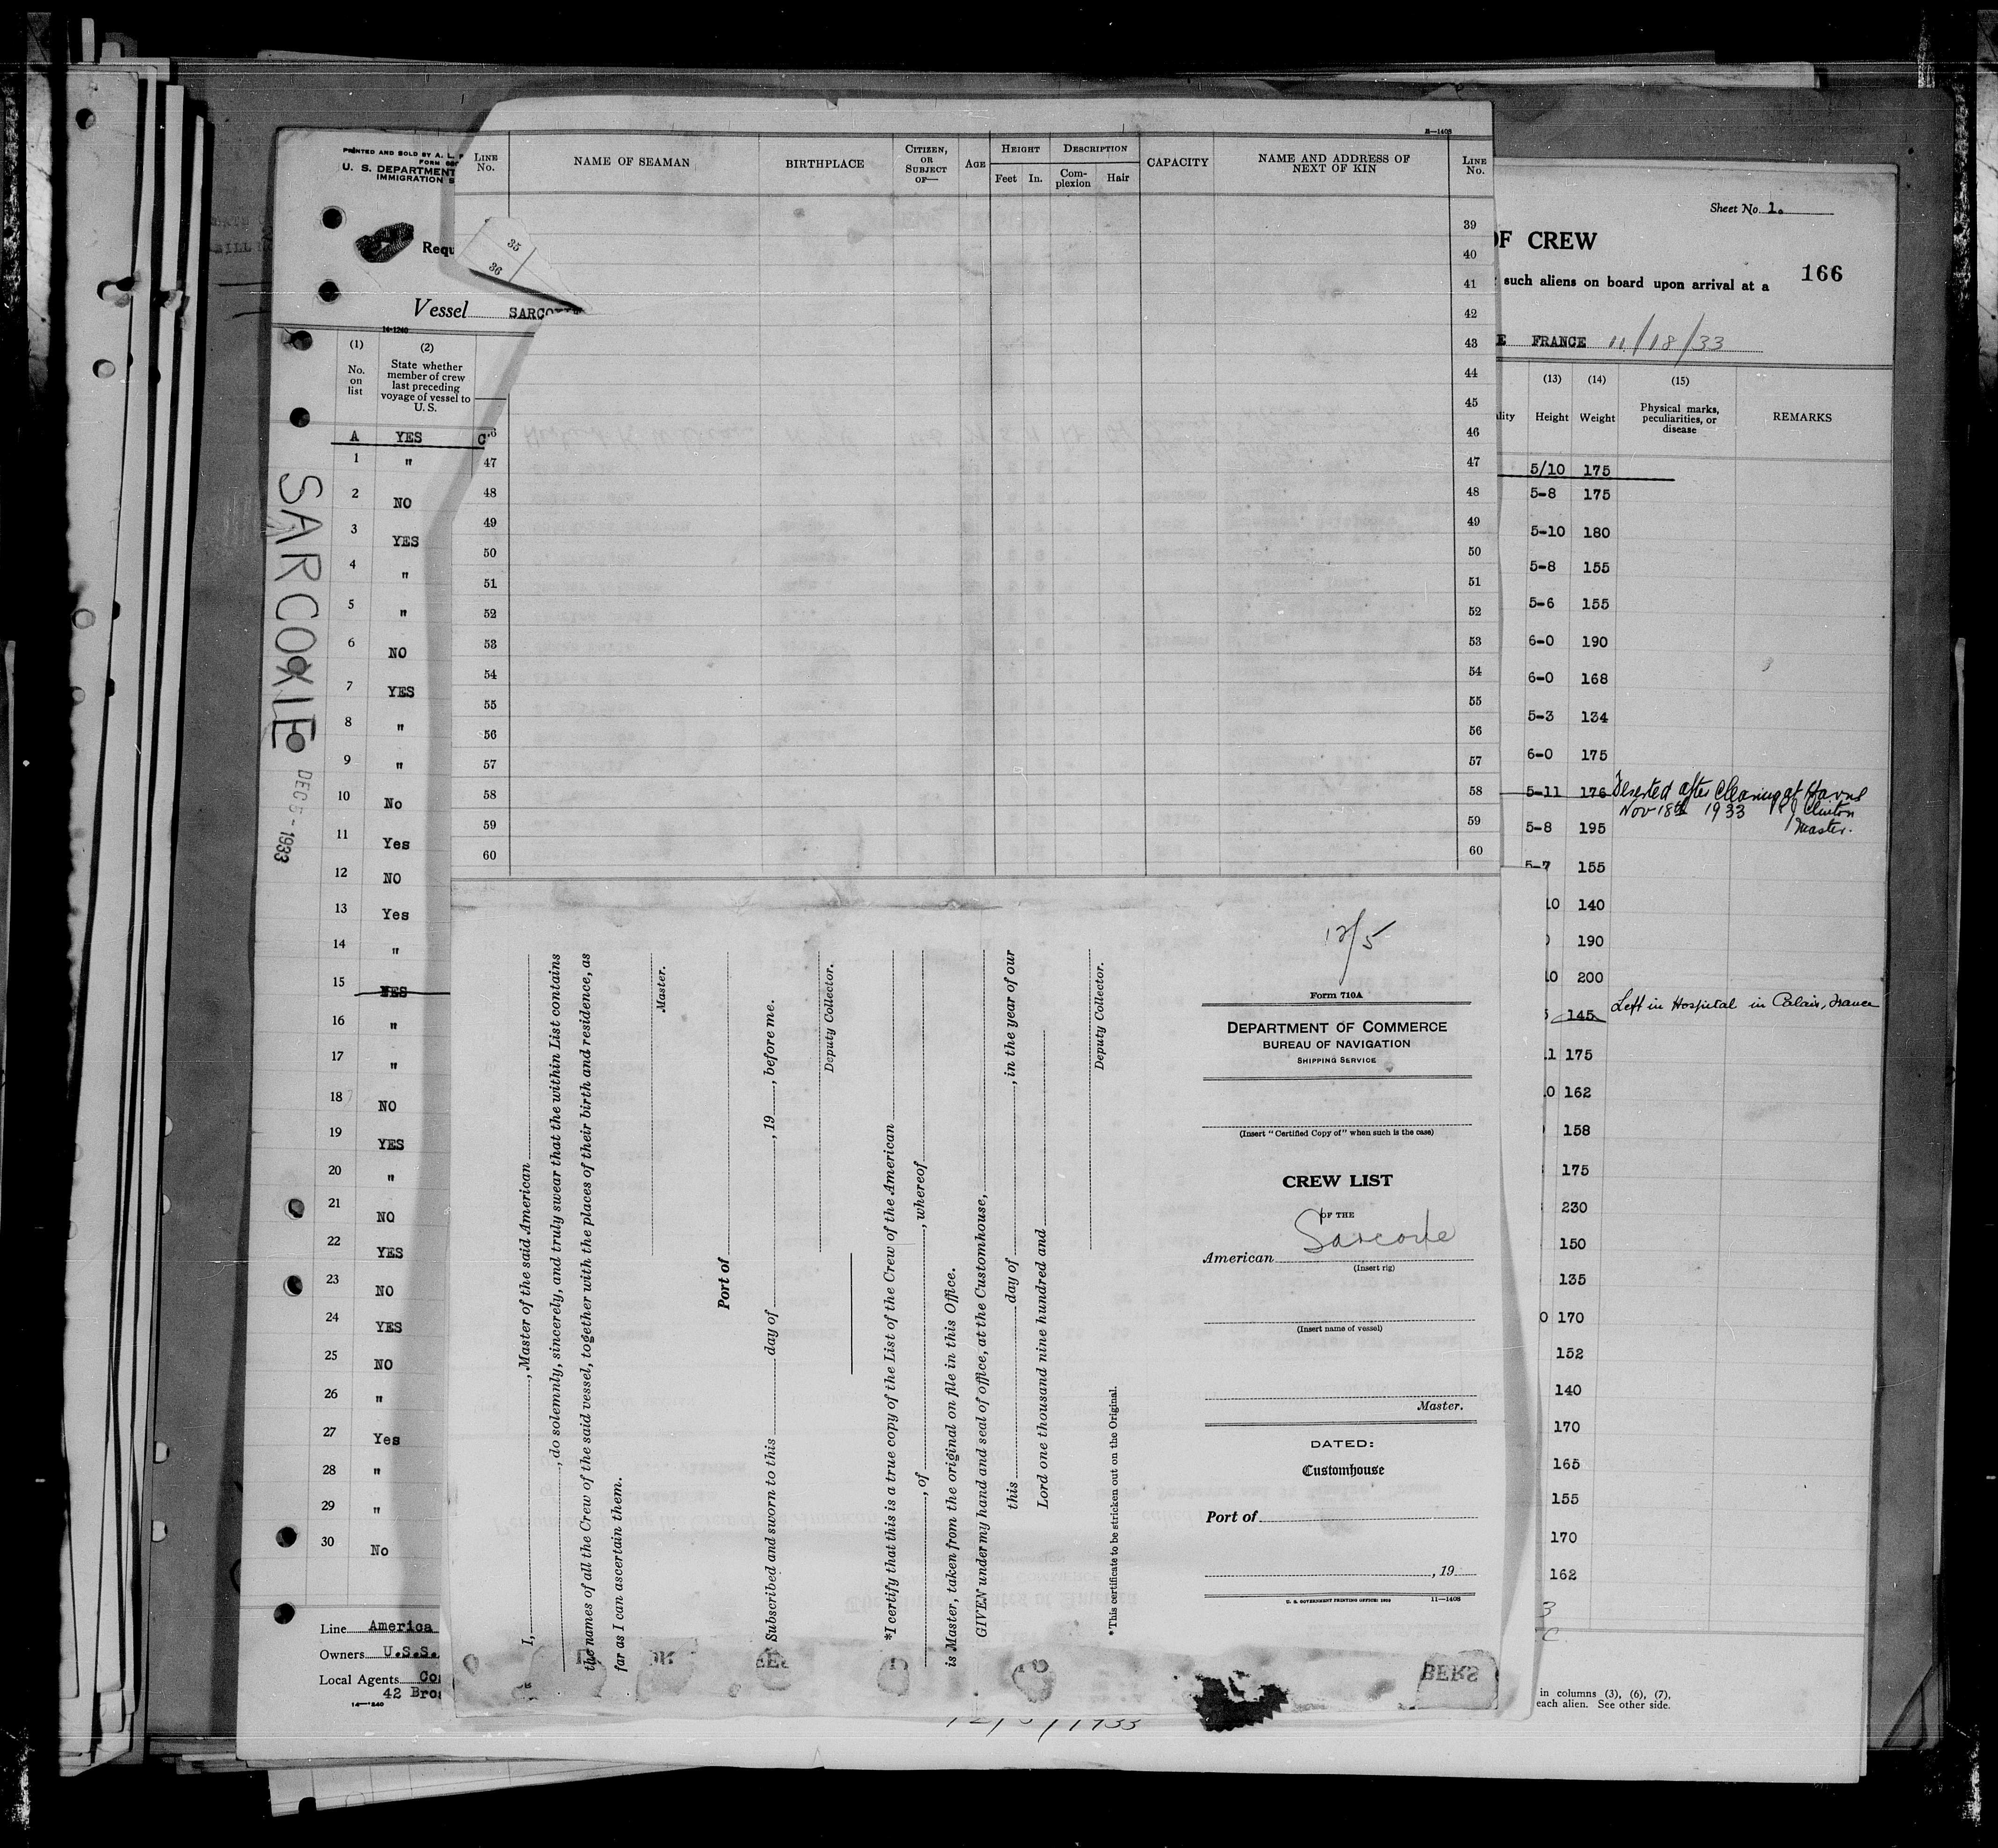 PRINTED AND SOLD BY A. L.
U. S. DEPARTMENT
IMMIGRATION S
Requ
Vessel SARCOXIE
14-1240
(1) No. on list
(2) State whether member of crew last preceding voyage of vessel to U. S.
A YES
1 "
2 NO
3 YES
4 "
5 "
6 NO
7 YES
8 "
9 "
10 No
11 Yes
12 NO
13 Yes
14 "
15 YES
16 "
17 "
18 NO
19 YES
20 "
21 NO
22 YES
23 NO
24 YES
25 NO
26 "
27 Yes
28 "
29 "
30 No
Line America
Owners U.S.S.
Local Agents Co
42 Bro
SARCOXIE
DEC 5 - 1933
35
36
LINE No.
NAME OF SEAMAN
BIRTHPLACE
CITIZEN, OR SUBJECT OF—
AGE
HEIGHT
Feet In.
DESCRIPTION
Complexion Hair
CAPACITY
NAME AND ADDRESS OF NEXT OF KIN
LINE No.
39
40
41
42
43
44
45
46
47 47
48 48
49 49
50 50
51 51
52 52
53 53
54 54
55 55
56 56
57 57
58 58
59 59
60 60
I, , Master of the said American
, do solemnly, sincerely, and truly swear that the within List contains
the names of all the Crew of the said vessel, together with the places of their birth and residence, as
far as I can ascertain them.
Master.
Port of
Subscribed and sworn to this day of , 19 , before me.
Deputy Collector.
*I certify that this is a true copy of the List of the Crew of the American
, of , whereof
is Master, taken from the original on file in this Office.
GIVEN under my hand and seal of office, at the Customhouse,
this day of , in the year of our
Lord one thousand nine hundred and
Deputy Collector.
*This certificate to be stricken out on the Original.
12/5
Form 710A
DEPARTMENT OF COMMERCE
BUREAU OF NAVIGATION
SHIPPING SERVICE
(Insert "Certified Copy of" when such is the case)
CREW LIST
OF THE
American Sarcoxie
(Insert rig)
(Insert name of vessel)
Master.
DATED:
Customhouse
Port of
, 19
U. S. GOVERNMENT PRINTING OFFICE
11—1408
BERS
Sheet No. 1.
OF CREW
166
such aliens on board upon arrival at a
E FRANCE 11/18/33
(13) Height
(14) Weight
(15) Physical marks, peculiarities, or disease
REMARKS
5/10 175
5-8 175
5-10 180
5-8 155
5-6 155
6-0 190
6-0 168
5-3 134
6-0 175
5-11 176 Deserted after clearing at Havre
Nov 18th 1933 R J Clinton
Master.
5-8 195
5-7 155
10 140
190
10 200
145 Left in Hospital in Calais, France
11 175
10 162
158
175
230
150
135
0 170
152
140
170
165
155
170
162
in columns (3), (6), (7),
each alien. See other side.